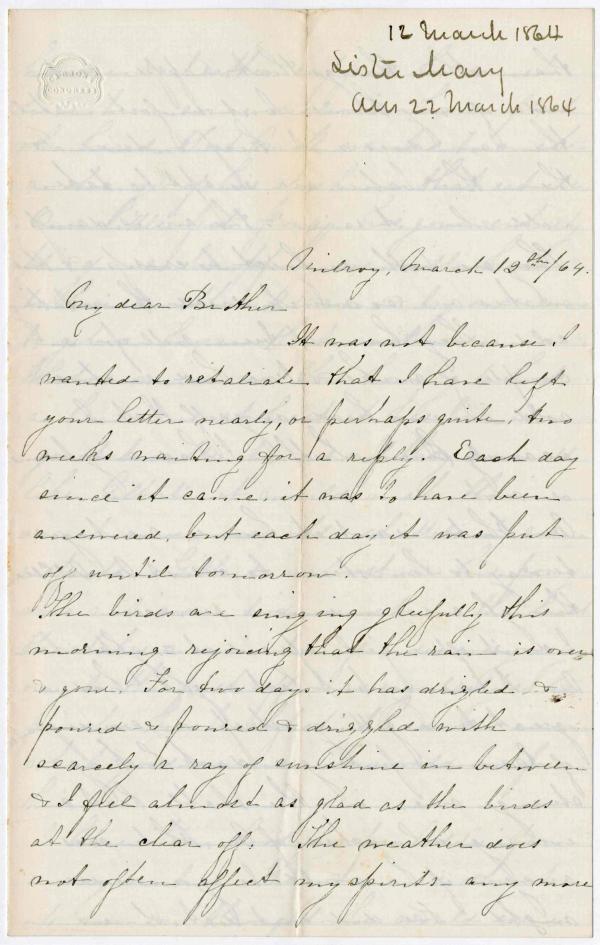 12 March 1864
Sister Mary
Ans 22 March 1864
CONGRESS
Milroy, March 12th/64.
My dear Brother
It was not because I
wanted to retaliate that I have left
your letter nearly, or perhaps quite, two
weeks waiting for a reply. Each day
since it came, it was to have been
answered, but each day it was put
off until tomorrow.
The birds are singing gleefully this
morning rejoicing that the rain is over
& gone. For two days it has drizled &
poured & poured & drizzled with
scarcely a ray of sunshine in between
& I feel almost as glad as the birds
at the clear off. The weather does
not often affect my spirits any more